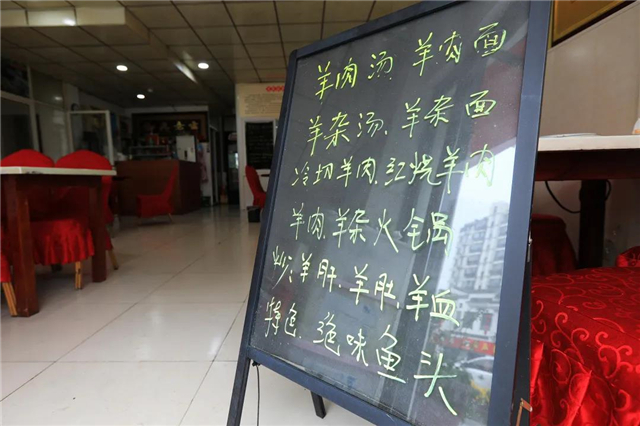 羊肉汤、羊肉面
羊杂汤、羊杂面
冷切羊肉、红烧羊肉
羊肉、羊杂火锅
炒羊肝、羊肚、羊血
特色、绝味鱼头